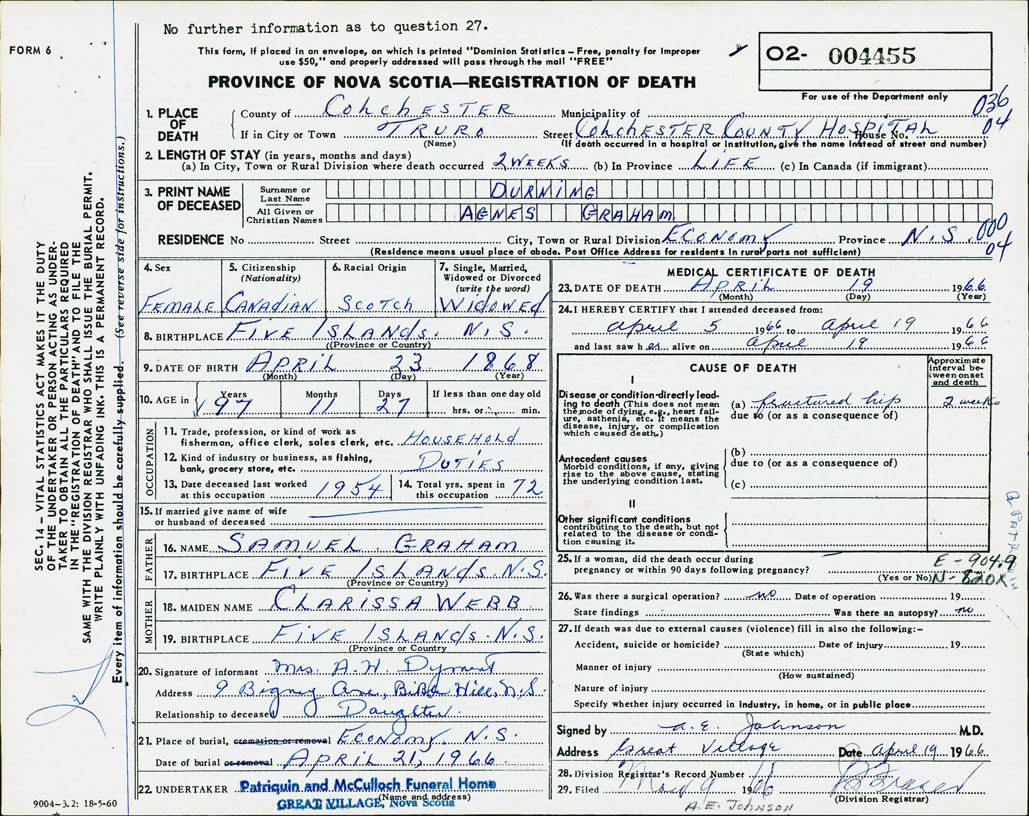 No further information as to question 27.
FORM 6
This form, if placed in an envelope, on which is printed "Dominion Statistics – Free, penalty for improper
use $50," and properly addressed will pass through the mail "FREE"
02- 004455
For use of the Department only
PROVINCE OF NOVA SCOTIA—REGISTRATION OF DEATH
036
04
1. PLACE OF DEATH
County of COLCHESTER Municipality of
If in City or Town TRURO Street COLCHESTER COUNTY HOSPITAL House No.
(Name) (If death occurred in a hospital or institution, give the name instead of street and number)
2. LENGTH OF STAY (in years, months and days)
(a) In City, Town or Rural Division where death occurred 2 WEEKS (b) In Province LIFE (c) In Canada (if immigrant)
3. PRINT NAME OF DECEASED
Surname or Last Name DURNING
All Given or Christian Names AGNES GRAHAM
000
04
RESIDENCE No Street City, Town or Rural Division ECONOMY Province N.S.
(Residence means usual place of abode. Post Office Address for residents in rural parts not sufficient)
4. Sex FEMALE
5. Citizenship (Nationality) CANADIAN
6. Racial Origin SCOTCH
7. Single, Married, Widowed or Divorced (write the word) WIDOWED
8. BIRTHPLACE FIVE ISLANDS. N.S.
(Province or Country)
9. DATE OF BIRTH APRIL 23 1868
(Month) (Day) (Year)
10. AGE in Years 97 Months 11 Days 27 If less than one day old hrs. or min.
OCCUPATION
11. Trade, profession, or kind of work as
fisherman, office clerk, sales clerk, etc. HOUSEHOLD
12. Kind of industry or business, as fishing,
bank, grocery store, etc. DUTIES
13. Date deceased last worked at this occupation 1954
14. Total yrs. spent in this occupation 72
15. If married give name of wife
or husband of deceased
FATHER
16. NAME SAMUEL GRAHAM
17. BIRTHPLACE FIVE ISLANDS. N.S.
(Province or Country)
MOTHER
18. MAIDEN NAME CLARISSA WEBB
19. BIRTHPLACE FIVE ISLANDS. N.S.
(Province or Country
20. Signature of informant Mrs. A.H. Dyment
Address 9 Bigney Ave, Bible Hill, N.S.
Relationship to deceased Daughter.
21. Place of burial, cremation or removal ECONOMY, N.S.
Date of burial or removal APRIL 21, 1966
22. UNDERTAKER Patriquin and McCulloch Funeral Home
(Name and address)
GREAT VILLAGE, Nova Scotia
MEDICAL CERTIFICATE OF DEATH
23. DATE OF DEATH APRIL 19 1966
(Month) (Day) (Year)
24. I HEREBY CERTIFY that I attended deceased from:
April 5 1966 to April 19 1966
and last saw her alive on April 19 1966
CAUSE OF DEATH
Approximate interval between onset and death
I
Disease or condition directly leading to death (This does not mean the mode of dying, e.g., heart failure, asthenia, etc. It means the disease, injury, or complication which caused death.)
(a) fractured hip 2 weeks
due to (or as a consequence of)
Antecedent causes
Morbid conditions, if any, giving rise to the above cause, stating the underlying condition last.
(b)
due to (or as a consequence of)
(c)
II
Other significant conditions
contributing to the death, but not related to the disease or condition causing it.
25. If a woman, did the death occur during
pregnancy or within 90 days following pregnancy?
(Yes or No)
E-904.9
N-820X
26. Was there a surgical operation? no Date of operation 19
State findings Was there an autopsy? no
27. If death was due to external causes (violence) fill in also the following:–
Accident, suicide or homicide? Date of injury 19
(State which)
Manner of injury
(How sustained)
Nature of injury
Specify whether injury occurred in industry, in home, or in public place
Signed by A.E. Johnson M.D.
Address Great Village Date April 19 1966
28. Division Registrar's Record Number
29. Filed May 9 1966
(Division Registrar)
A.E. JOHNSON
SEC. 14 – VITAL STATISTICS ACT MAKES IT THE DUTY
OF THE UNDERTAKER OR PERSON ACTING AS UNDER-
TAKER TO OBTAIN ALL THE PARTICULARS REQUIRED
IN THE "REGISTRATION OF DEATH" AND TO FILE THE
SAME WITH THE DIVISION REGISTRAR WHO SHALL ISSUE THE BURIAL PERMIT.
WRITE PLAINLY WITH UNFADING INK. THIS IS A PERMANENT RECORD.
Every item of information should be carefully supplied. (See reverse side for instructions.)
9004-3.2: 18-5-60